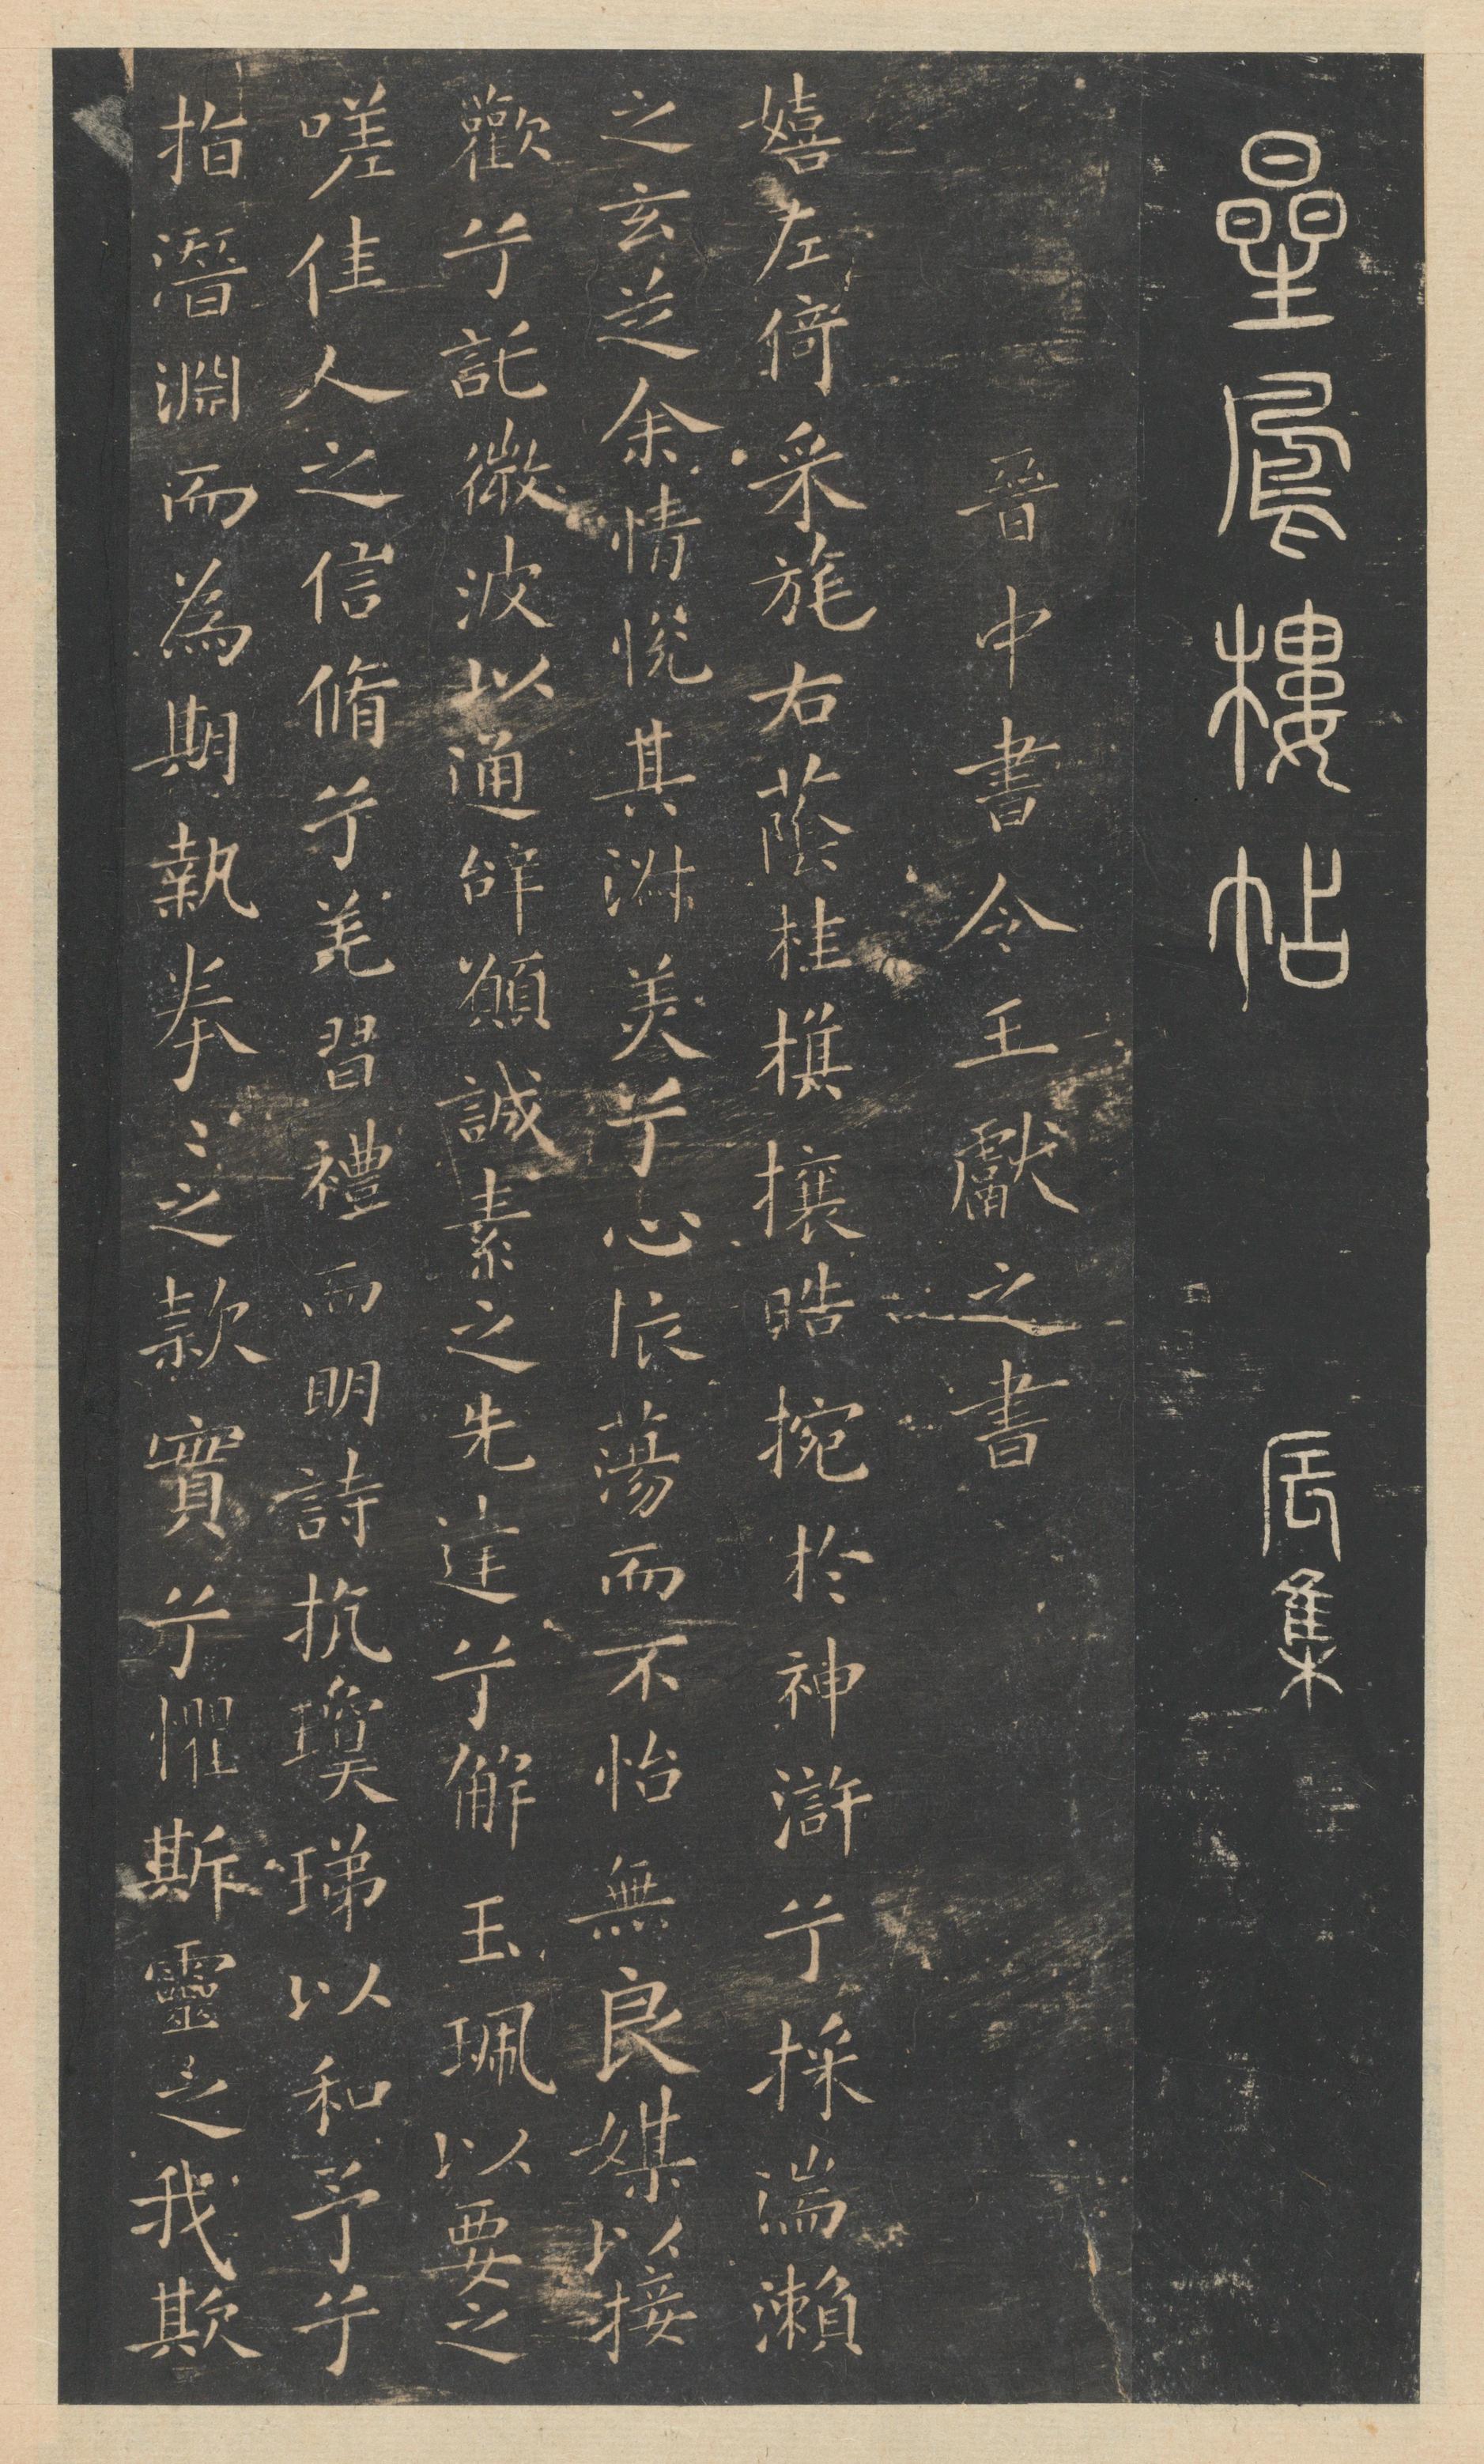 星鳳樓帖 辰集
晉中書令王獻之書
嬉左倚采旄右蔭桂棋攘皓捥於神滸兮採湍瀨
之玄芝余情悅其淑美兮心振蕩而不怡無良媒以接
歡兮託微波以通辭願誠素之先達兮解玉珮以要之
嗟佳人之信脩兮羌習禮而明詩抗瓊珶以和予兮
指潛淵而為期執拳〻之款實兮懼斯靈之我欺